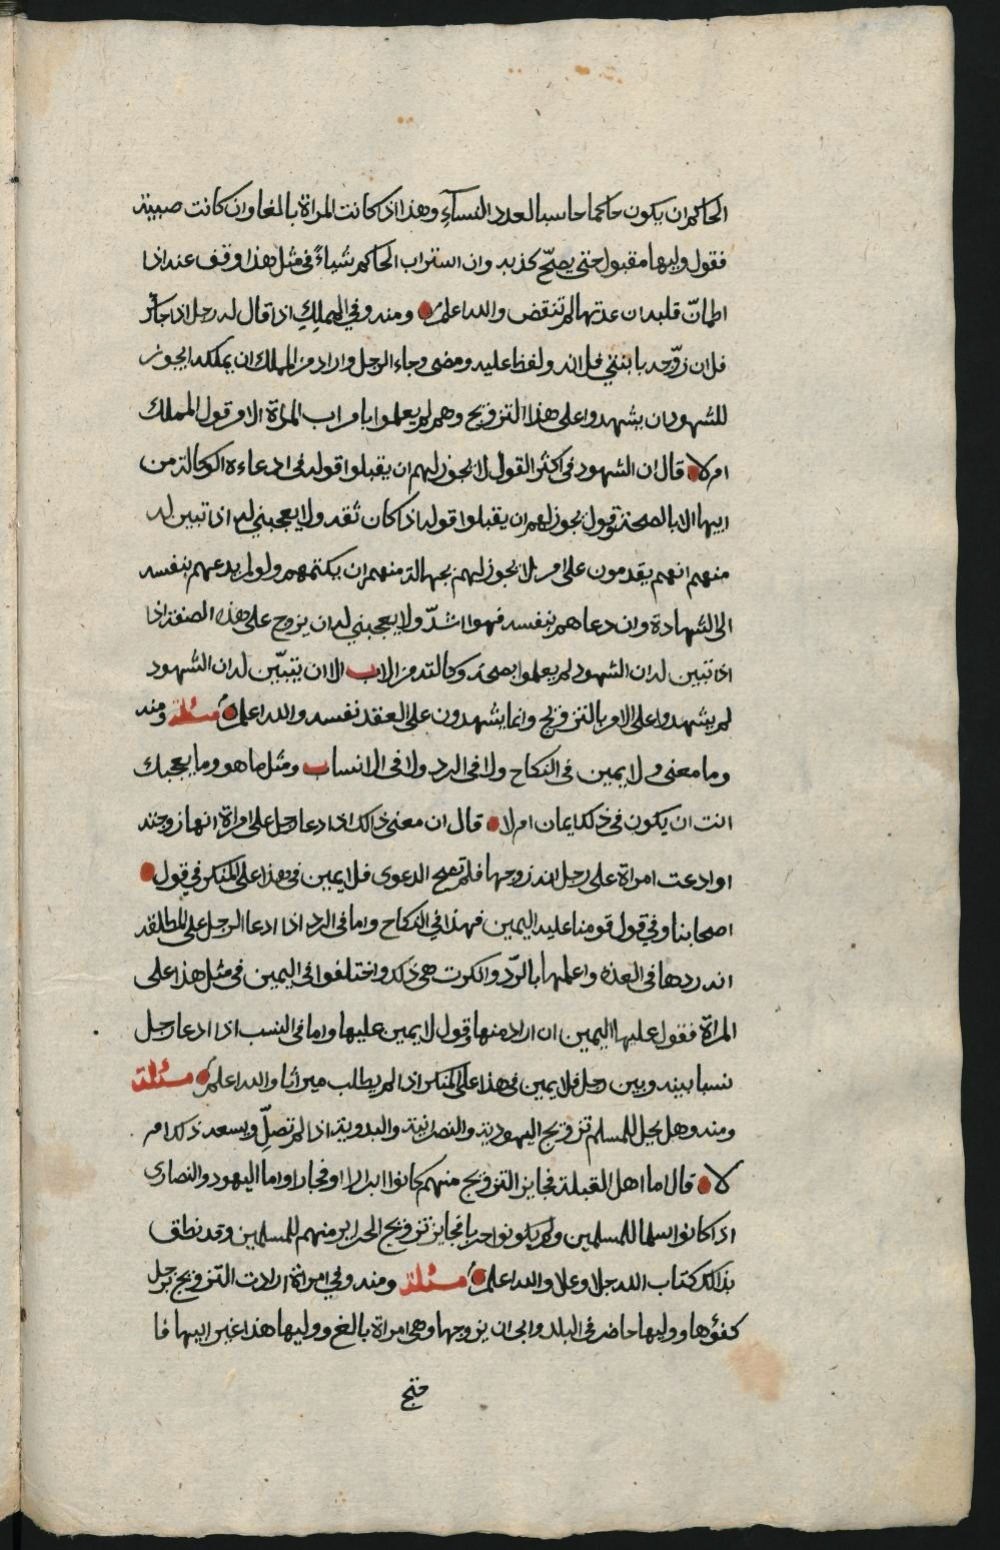 الحاكم ان يكون حاكما حاسبا لعدد النسآء وهذا اذ كانت المراة بالغا وان كانت صبية
فقول وليها مقبول حتى يصحّ كذبه وان استراب الحاكم شياءً في مثل هذا وقف عند اذا
اطمانّ قلبه ان عدتها لم تنقض والله اعلم ومنه وفي المملِكِ اذا قال له رجل اذا جائز
فلان زوّجه بابنتي فلانه ولفظ عليه ومضى وجاء الرجل واراد من المملك ان يملكه ايجوز
للشهود ان يشهدوا على هذا التزويج وهم لم يعلموا بامر اب المراة الا من قول المملك
ام لا قال ان الشهود في اكثر القول لا يجوز لهم ان يقبلوا قوله في ادعاءه الوكالة من
ابيها الا بالصحة وقول يجوز لهم ان يقبلوا قوله اذا كان ثقه ولا يعجبني له اذا تبين له
منهم انهم يقدمون على امر لا يجوز لهم بجهالة منهم ان يكتمهم ولو لم يدعهم بنفسه
الى الشهادة وان دعاهم بنفسه فهو اشدّ ولا يعجبني له ان يزوج على هذه الصفة اذا
اذا تبين له ان الشهود لم يعلموا بصحة وكالته من الاب الا ان يتبيّن له ان الشهود
لم يشهدوا على الامر بالتزويج وانما يشهدون على العقد نفسه والله اعلم مسئلة ومنه
وما معنى ولا يمين في النكاح ولا في الرد ولا في الانساب ومثل ما هو وما يعجبك
انت ان يكون في ذلك ايمان ام لا قال ان معنى ذالك اذا ادعا رجل على امراة انها زوجته
او ادعت امراة على رجل انه زوجها فلم تصح الدعوى فلا يمين في هذا على المنكر في قول
اصحابنا وفي قول قومنا عليه اليمين فهذا في النكاح واما في الرد اذا ادعا الرجل على المطلقه
انه ردها في العده واعلمها بالرّد وانكرت هي ذلك واختلفوا في اليمين في مثل هذا على
المراة فقول عليها اليمين ان اراد منها وقول لا يمين عليها واما في النسب اذا ادعا رجل
نسبا بينه وبين رجل فلا يمين في هذا على المنكر اذا لم يطلب ميراثا والله اعلم مسئلة
ومنه وهل يحل للمسلم تزويج اليهودية والنصرانية والبدوية اذا لم تصلِّ ويسعه ذلك ام
لا قال اما اهل القبلة فجايز التزويج منهم كانوا ابرارا او فجارا واما اليهود والنصارى
اذا كانوا سلما للمسلمين ولم يكونوا حربا فجايز تزويج الحراير منهم للمسلمين وقد نطق
بذالك كتاب الله جلا وعلا والله اعلم مسئلة ومنه وفي امراة ارادت التزويج برجل
كفؤها ووليها حاضر في البلد وابى ان يزوجها وهي امراة بالغ ووليها هذا غير ابيها فا